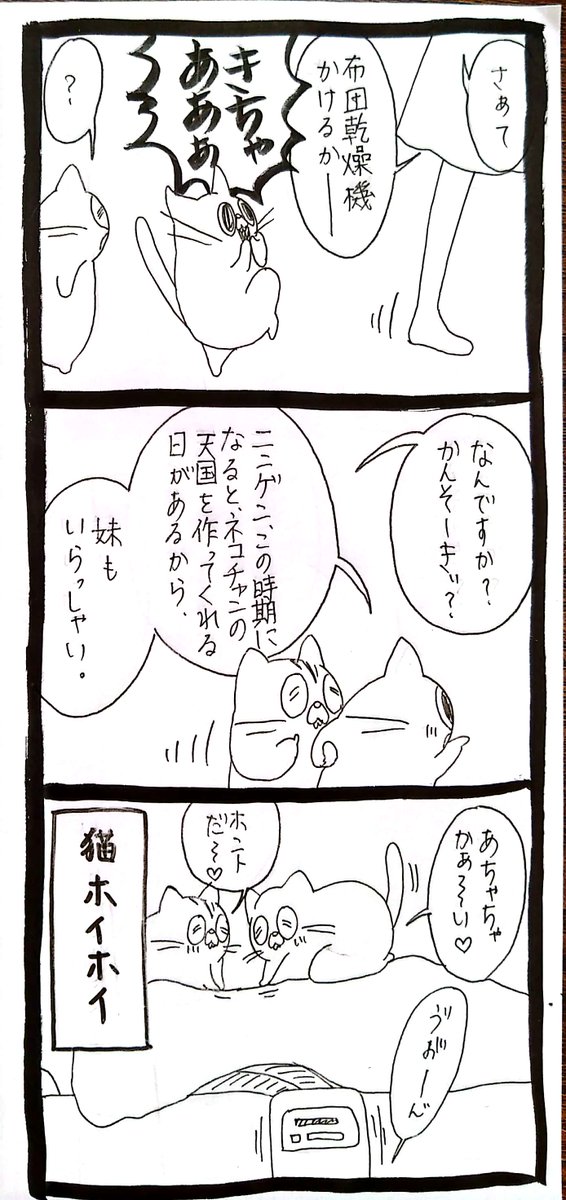 さぁて
布団乾燥機
かけるかー
キちゃ
あああ
〜〜
？
なんですか？
かんそーきッ？
ニンゲン、この時期に
なると、ネコチャンの
天国を作ってくれる
日があるから、
妹も
いらっしゃい。
あちゃちゃ
かぁ〜い♡
ホント
だ〜♡
猫ホイホイ
ゔぉーん